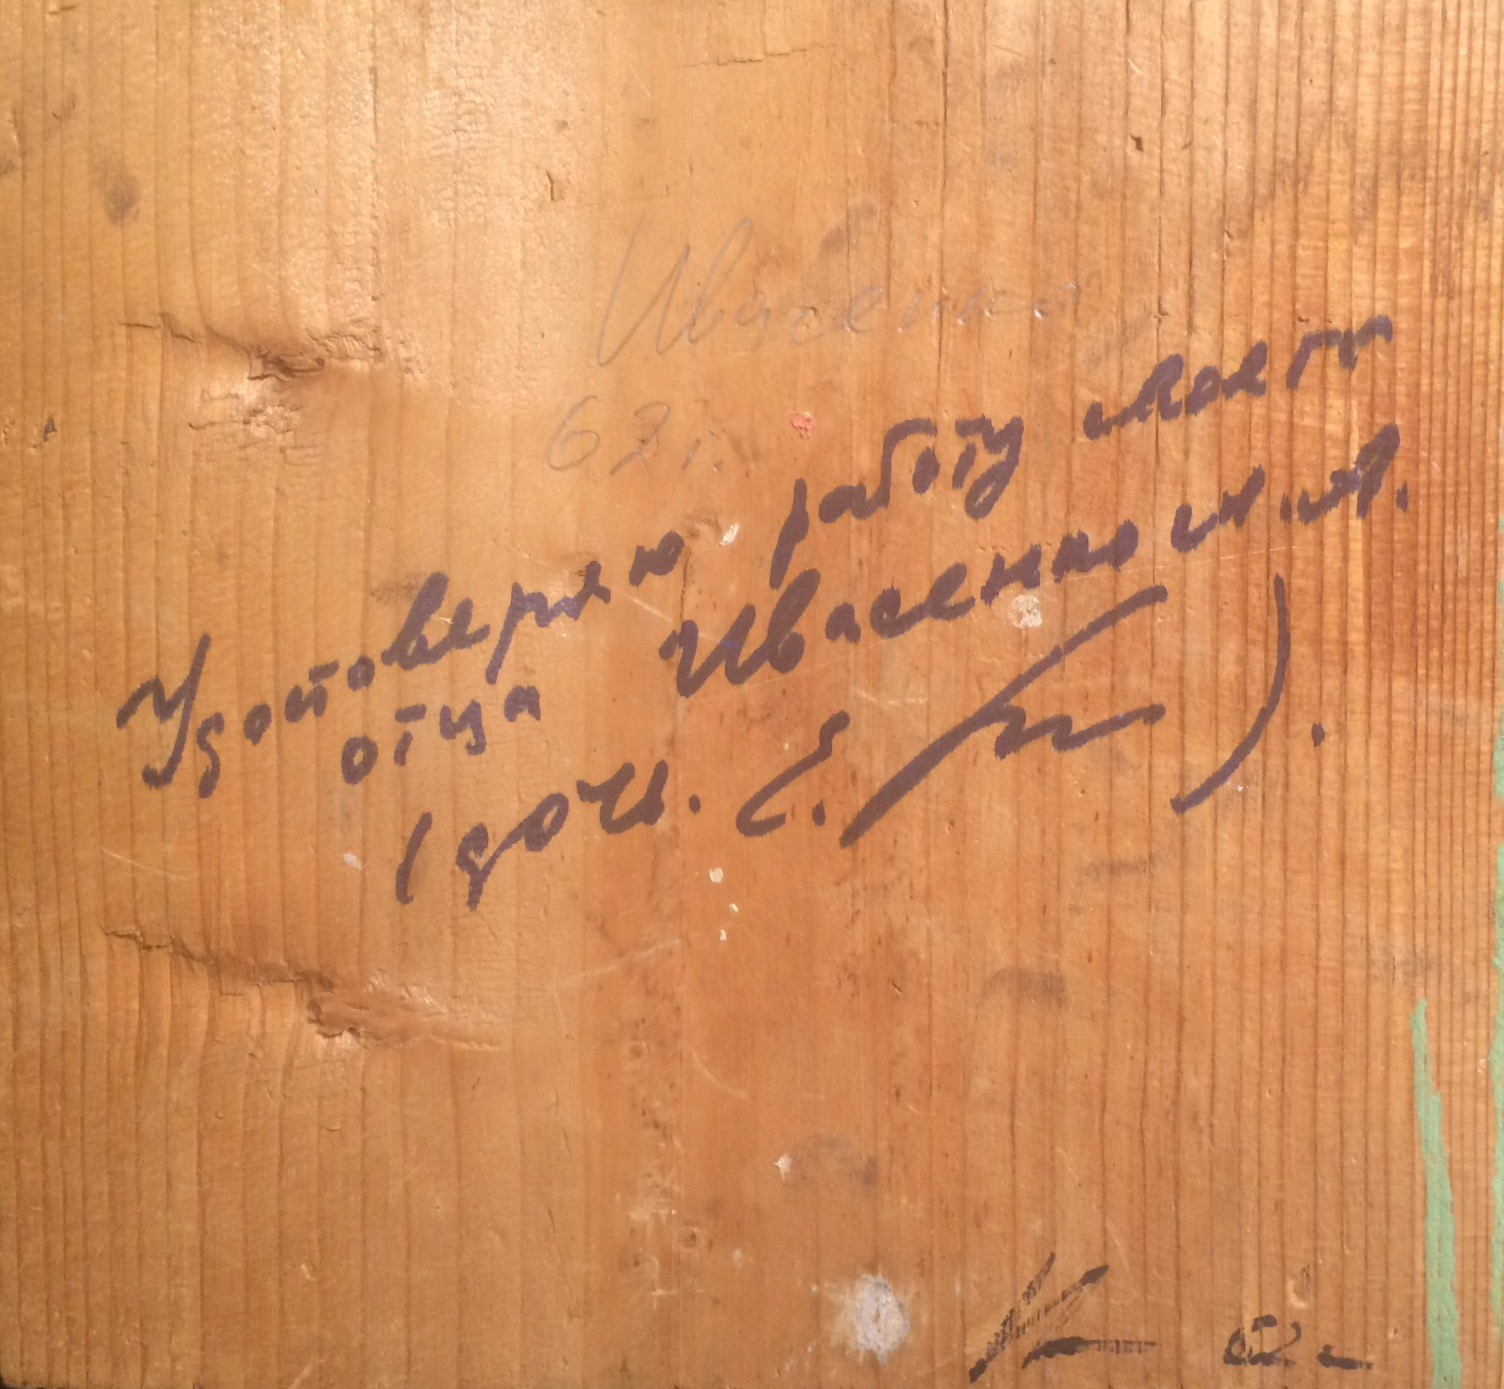 Ивасенко
62 г.
Удостоверяю работу моего
отца Ивасенко И.А.
(дочь. Е.
).
62 г